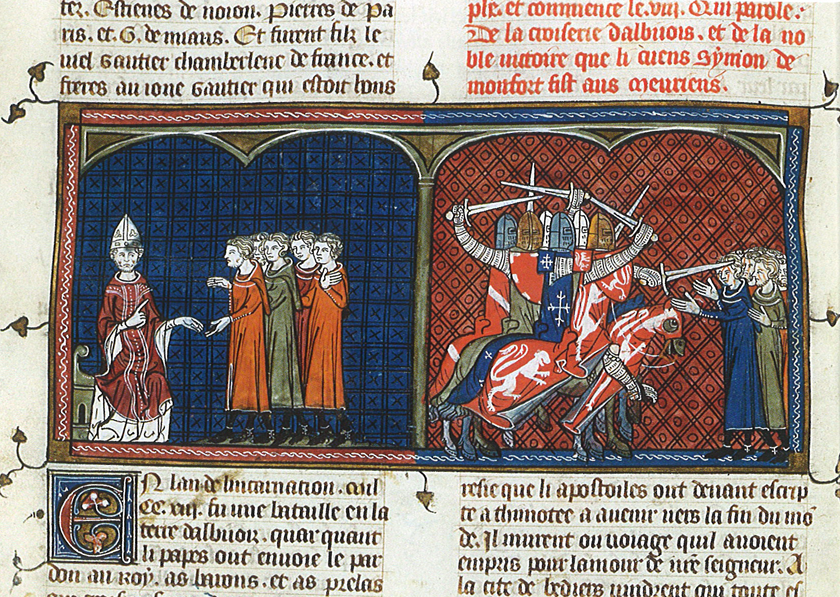 tez. Estienes de noion. Pierres de pa
ris. et. G. de miaus. Et furent filz le
viel gautier chamberlenc de france. et
freres au ione gautier qui estoit lons
ple. et commence le. viij. Qui parole:
De la croiserie dalbiiois. et de la no
ble uictoire que li cuens symon de
monfort fist aus
EN lan de lincarnation. mil
CC. viij. fu une bataille en la
terre dalbiiois. quar quant
li papes out envoie le par
don au roy. as barons. et as prelas
resie que li apostoiles out devant escrip
te a thimotee a avenir vers la fin du mo
de. Il murent ou voiage quil avoient
empris pour lamour de nre seigneur. A
la cite de bediers vindrent qui toute es